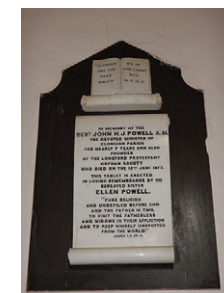 IN MEMORY OF THE
REVD JOHN H.J. POWELL A.M.
THE DEVOTED MINISTER OF
CLONGISH PARISH
FOR NEARLY 9 YEARS AND ALSO
FOUNDER
OF THE LONGFORD PROTESTANT
ORPHAN SOCIETY
WHO DIED ON THE
THIS TABLET IS ERECTED
IN LOVING REMEMBRANCE BY HIS
BEREAVED SISTER
ELLEN POWELL.
"PURE RELIGION
AND UNDEFILED BEFORE GOD
AND THE FATHER IS THIS,
TO VISIT THE FATHERLESS
AND WIDOWS IN THEIR AFFLICTION
AND TO KEEP HIMSELF UNSPOTTED
FROM THE WORLD"